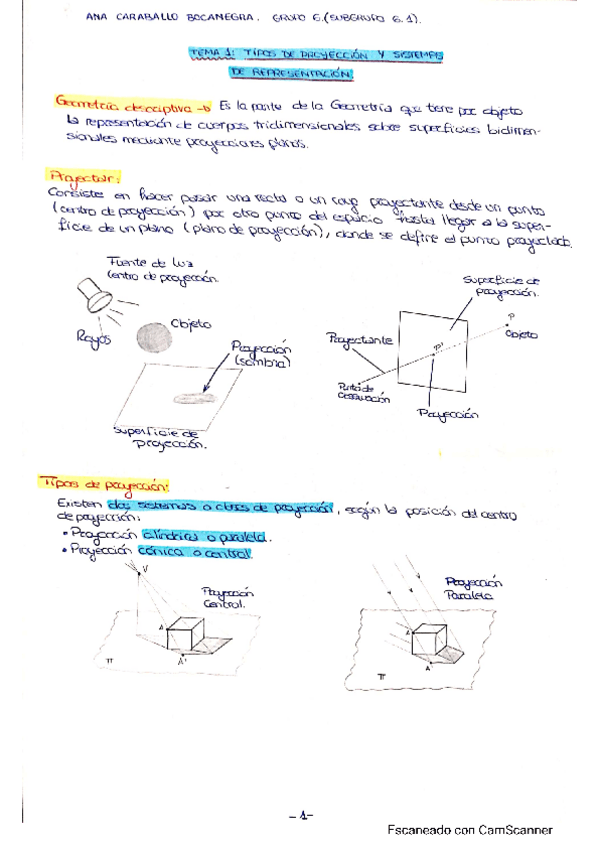 ANA CARABALLO BOCANEGRA. GRUPO 6.(SUBGRUPO 6.1).
TEMA 1: TIPOS DE PROYECCIÓN Y SISTEMAS
DE REPRESENTACIÓN.
Geometría descriptiva → Es la parte de la Geometría que tiene por objeto
la representación de cuerpos tridimensionales sobre superficies bidimen-
sionales mediante proyecciones planas.
Proyectar:
Consiste en hacer pasar una recta o un rayo proyectante desde un punto
(centro de proyección) por otro punto del espacio hasta llegar a la super-
ficie de un plano (plano de proyección), donde se define el punto proyectado.
Fuente de luz
Centro de proyección
Rayos
Objeto
Proyección
(sombra)
Superficie de
proyección.
Superficie de
proyección.
Proyectante
P
Objeto
P'
Punto de
observación
Proyección
Tipos de proyección:
Existen dos sistemas o clases de proyección, según la posición del centro
de proyección:
• Proyección cilíndrica o paralela.
• Proyección cónica o central.
V
Proyección
Central.
A
A'
π
Proyección
Paralela
A
A'
π
-1-
Escaneado con CamScanner